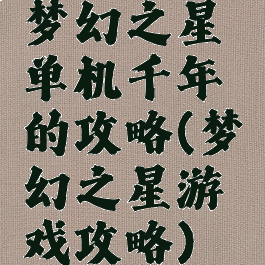 梦幻之星
单机千年
的攻略(梦
幻之星游
戏攻略)